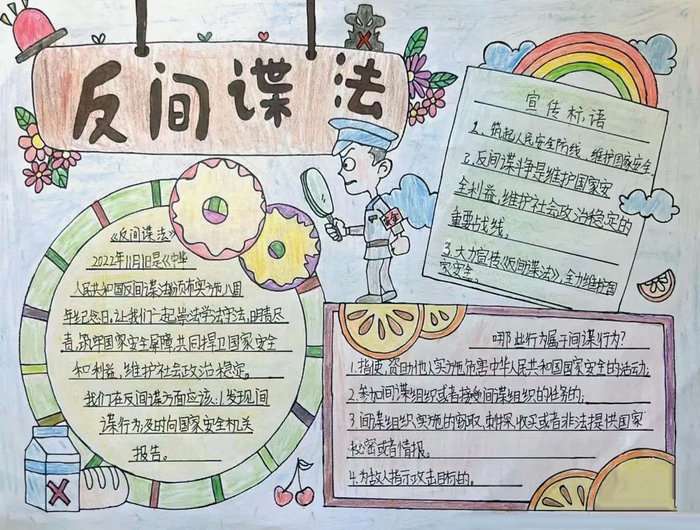 反间谍法
宣传标语
1、筑起人民安全防线，维护国家安全。
2、反间谍斗争是维护国家安
全利益，维护社会政治稳定的
重要战线。
3、大力宣传《反间谍法》，全力维护国
家安全。
《反间谍法》
2022年11月1日是《中华
人民共和国反间谍法》颁布实施八周
年纪念日，让我们一起学法守法，明责尽
责，筑牢国家安全屏障，共同捍卫国家安全
和利益，维护社会政治稳定。
我们在反间谍方面应该：1发现间
谍行为及时向国家安全机关
报告。
哪些行为属于间谍行为？
1.指使、资助他人实施危害中华人民共和国国家安全的活动；
2.参加间谍组织或者接受间谍组织的任务的；
3间谍组织实施的窃取、刺探、收买或者非法提供国家
秘密或者情报。
4.为敌人指示攻击目标的。